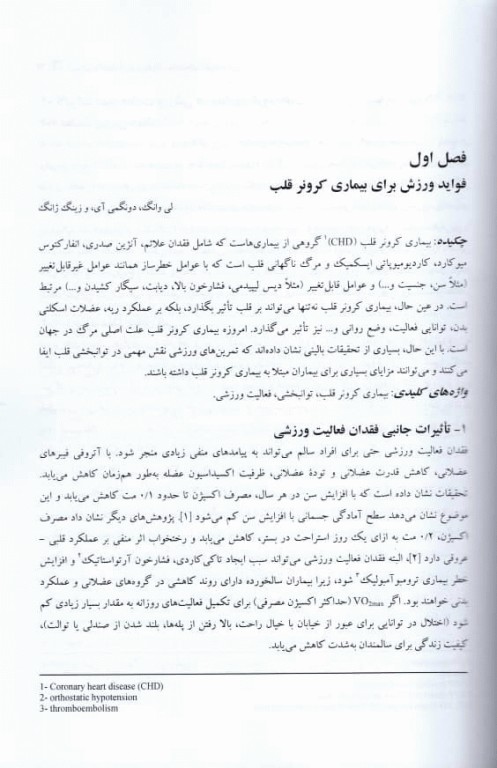 فصل اول
فواید ورزش برای بیماری کرونر قلب
لی وانگ، دونگمی آی، و زینگ ژانگ
چکیده: بیماری کرونر قلب (CHD)۱ گروهی از بیماری‌هاست که شامل فقدان علائم، آنژین صدری، انفارکتوس
میوکارد، کاردیومیوپاتی ایسکمیک و مرگ ناگهانی قلب است که با عوامل خطرساز همانند عوامل غیرقابل‌تغییر
(مثلاً سن، جنسیت و...) و عوامل قابل‌تغییر (مثلاً دیس لیپیدمی، فشارخون بالا، دیابت، سیگار کشیدن و...) مرتبط
است. در عین حال، بیماری کرونر قلب نه‌تنها می‌تواند بر قلب تأثیر بگذارد، بلکه بر عملکرد ریه، عضلات اسکلتی
بدن، توانایی فعالیت، وضع روانی و... نیز تأثیر می‌گذارد. امروزه بیماری کرونر قلب علت اصلی مرگ در جهان
است. با این حال، بسیاری از تحقیقات بالینی نشان داده‌اند که تمرین‌های ورزشی نقش مهمی در توانبخشی قلب ایفا
می‌کنند و می‌توانند مزایای بسیاری برای بیماران مبتلا به بیماری کرونر قلب داشته باشند.
واژه‌های کلیدی: بیماری کرونر قلب، توانبخشی، فعالیت ورزشی.
۱- تأثیرات جانبی فقدان فعالیت ورزشی
فقدان فعالیت ورزشی حتی برای افراد سالم می‌تواند به پیامدهای منفی زیادی منجر شود. با آتروفی فیبرهای
عضلانی، کاهش قدرت عضلانی و تودهٔ عضلانی، ظرفیت اکسیداسیون عضله به‌طور هم‌زمان کاهش می‌یابد.
تحقیقات نشان داده است که با افزایش سن در هر سال، مصرف اکسیژن تا حدود ۰/۱ مت کاهش می‌یابد و این
موضوع نشان می‌دهد سطح آمادگی جسمانی با افزایش سن کم می‌شود [۱]. پژوهش‌های دیگر نشان داد مصرف
اکسیژن، ۰/۲ مت به ازای یک روز استراحت در بستر، کاهش می‌یابد و رختخواب اثر منفی بر عملکرد قلبی -
عروقی دارد [۲]. البته فقدان فعالیت ورزشی می‌تواند سبب ایجاد تاکی‌کاردی، فشارخون آرتواستاتیک۲ و افزایش
خطر بیماری ترومبوآمبولیک۳ شود، زیرا بیماران سالخورده دارای روند کاهشی در گروه‌های عضلانی و عملکرد
بدنی خواهند بود. اگر VO2max (حداکثر اکسیژن مصرفی) برای تکمیل فعالیت‌های روزانه به مقدار بسیار زیادی کم
شود (اختلال در توانایی برای عبور از خیابان با خیال راحت، بالا رفتن از پله‌ها، بلند شدن از صندلی یا توالت)،
کیفیت زندگی برای سالمندان به‌شدت کاهش می‌یابد.
1- Coronary heart disease (CHD)
2- orthostatic hypotension
3- thromboembolism